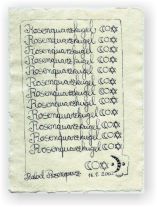 Rosenquarzkugel
Rosenquarzkugel
Rosenquarzkugel
Rosenquarzkugel
Rosenquarzkugel
Rosenquarzkugel
Rosenquarzkugel
Rosenquarzkugel
Rosenquarzkugel
Rosenquarzkugel
Rosenquarzkugel
Rosenquarzkugel